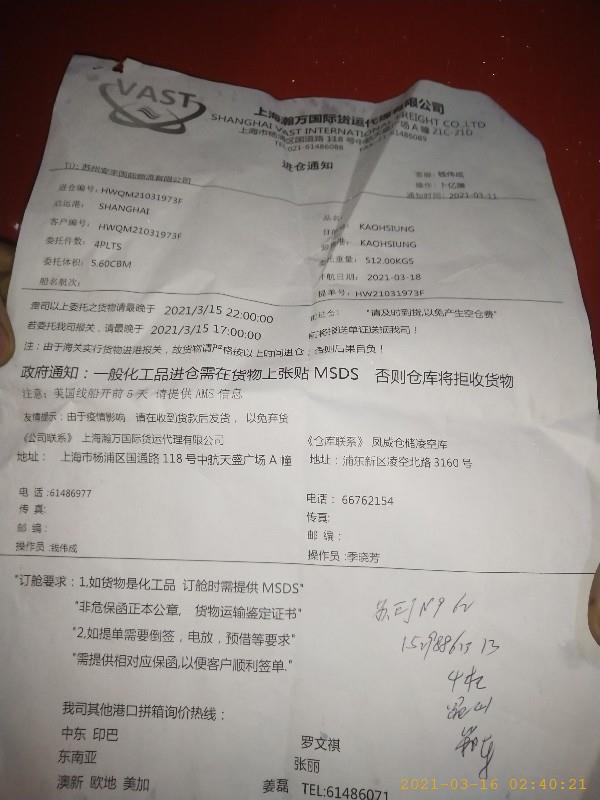 VAST
上海瀚万国际货运代理有限公司
SHANGHAI VAST INTERNATIONAL FREIGHT CO.,LTD
上海市杨浦区国通路 118 号 A 幢 21C-21D
TEL:021-61486088 FAX: 61486089
进仓通知
TO: 苏州 国际物流有限公司
客服: 钱伟成
操作: 卜亿
通知时间: 2021-03-11
进仓编号: HWQM21031973F
品名:
启运港: SHANGHAI
KAOHSIUNG
客户编号: HWQM21031973F
KAOHSIUNG
委托件数: 4PLTS
重量: 512.00KGS
委托体积: 5.60CBM
开航日期: 2021-03-18
船名航次:
提单号: HW21031973F
贵司以上委托之货物请最晚于 2021/3/15 22:00:00
"请及时到货,以免产生空仓费"
若委托我司报关, 请最晚于 2021/3/15 17:00:00
前将报送单证送抵我司!
注: 由于海关实行货物进港报关, 故货物请严格按以上时间进仓, 否则后果自负!
政府通知: 一般化工品进仓需在货物上张贴 MSDS 否则仓库将拒收货物
注意: 美国线船开前 5 天 请提供 AMS 信息
友情提示: 由于疫情影响 请在收到货款后发货, 以免弃货
《公司联系》 上海瀚万国际货运代理有限公司
《仓库联系》 凤威仓储凌空库
地址: 上海市杨浦区国通路 118 号中航天盛广场 A 幢
地址: 浦东新区凌空北路 3160 号
电 话 :61486977
电话: 66762154
传 真:
传真:
邮 编:
邮 编:
操作员 :钱伟成
操作员 :季晓芳
"订舱要求: 1,如货物是化工品 订舱时需提供 MSDS"
"非危保函正本公章, 货物运输鉴定证书"
"2,如提单需要倒签, 电放, 预借等要求"
"需提供相对应保函,以便客户顺利签单."
我司其他港口拼箱询价热线:
中东 印巴
罗文祺
东南亚
张丽
澳新 欧地 美加
姜磊 TEL:61486071
2021-03-16 02:40:21